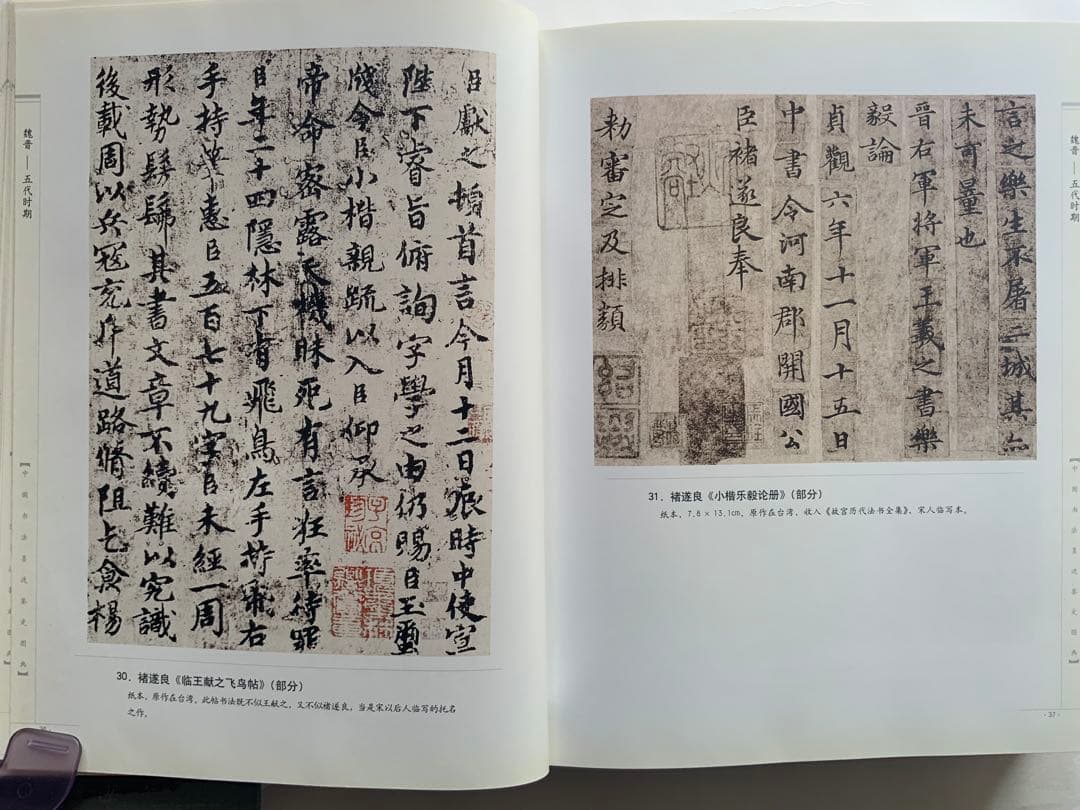 魏晋——五代时期
臣獻之稽首言今月十二日辰時中使宣
陛下睿旨俯詢字學之由仍賜臣玉璽
牋令臣小楷親疏以入臣仰承
帝命密露天機昧死有言狂率待罪
臣年二十四隱林下有飛鳥左手持帋右
手持筆惠臣五百七十九字臣未經一周
形勢髣髴其書文章不續難以究識
後載周以兵寇充斥道路脩阻乞食楊
30．褚遂良《临王献之飞鸟帖》（部分）
纸本，原作在台湾，此帖书法既不似王献之，又不似褚遂良，当是宋以后人临写的托名
之作。
【中国书法墨迹鉴定图典】
魏晋——五代时期
言之樂生不屠二城其亦
未可量也
晉右軍將軍王羲之書樂
毅論
貞觀六年十一月十五日
中書令河南郡開國公
臣褚遂良奉
勅審定及排類
31．褚遂良《小楷乐毅论册》（部分）
纸本，7.8×13.1cm，原作在台湾，收入《故宫历代法书全集》，宋人临写本。
【中国书法墨迹鉴定图典】
·37·